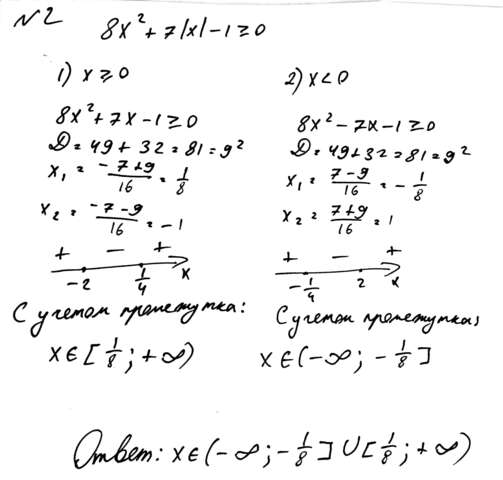 N2 8x² + 7|x| - 1 ≥ 0
1) x ≥ 0
8x² + 7x - 1 ≥ 0
D = 49 + 32 = 81 = 9²
x₁ = (-7+9)/16 = 1/8
x₂ = (-7-9)/16 = -1
+ - +
-2 1/4 x
С учетом промежутка:
x ∈ [1/8; +∞)
2) x < 0
8x² - 7x - 1 ≥ 0
D = 49 + 32 = 81 = 9²
x₁ = (7-9)/16 = -1/8
x₂ = (7+9)/16 = 1
+ - +
-1/4 2 x
С учетом промежутка:
x ∈ (-∞; -1/8]
Ответ: x ∈ (-∞; -1/8] ∪ [1/8; +∞)